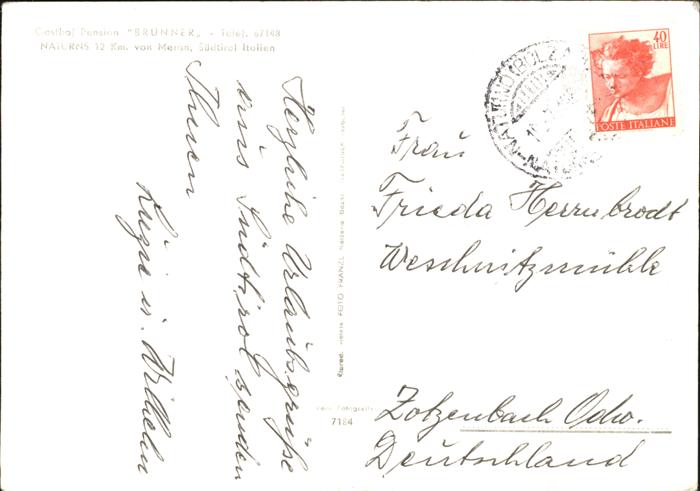 Gasthof Pension "BRUNNER" - Telef. 67148
NATURNS 12 Km. von Meran, Südtirol Italien
Herzliche Urlaubsgrüße
aus Südtirol senden
Ihnen
u. Wilhelm
FOTO FRANZL
7184
40
LIRE
POSTE ITALIANE
Frau
Frieda Herrnbrodt
Weschnitzmühle
Zotzenbach Odw.
Deutschland